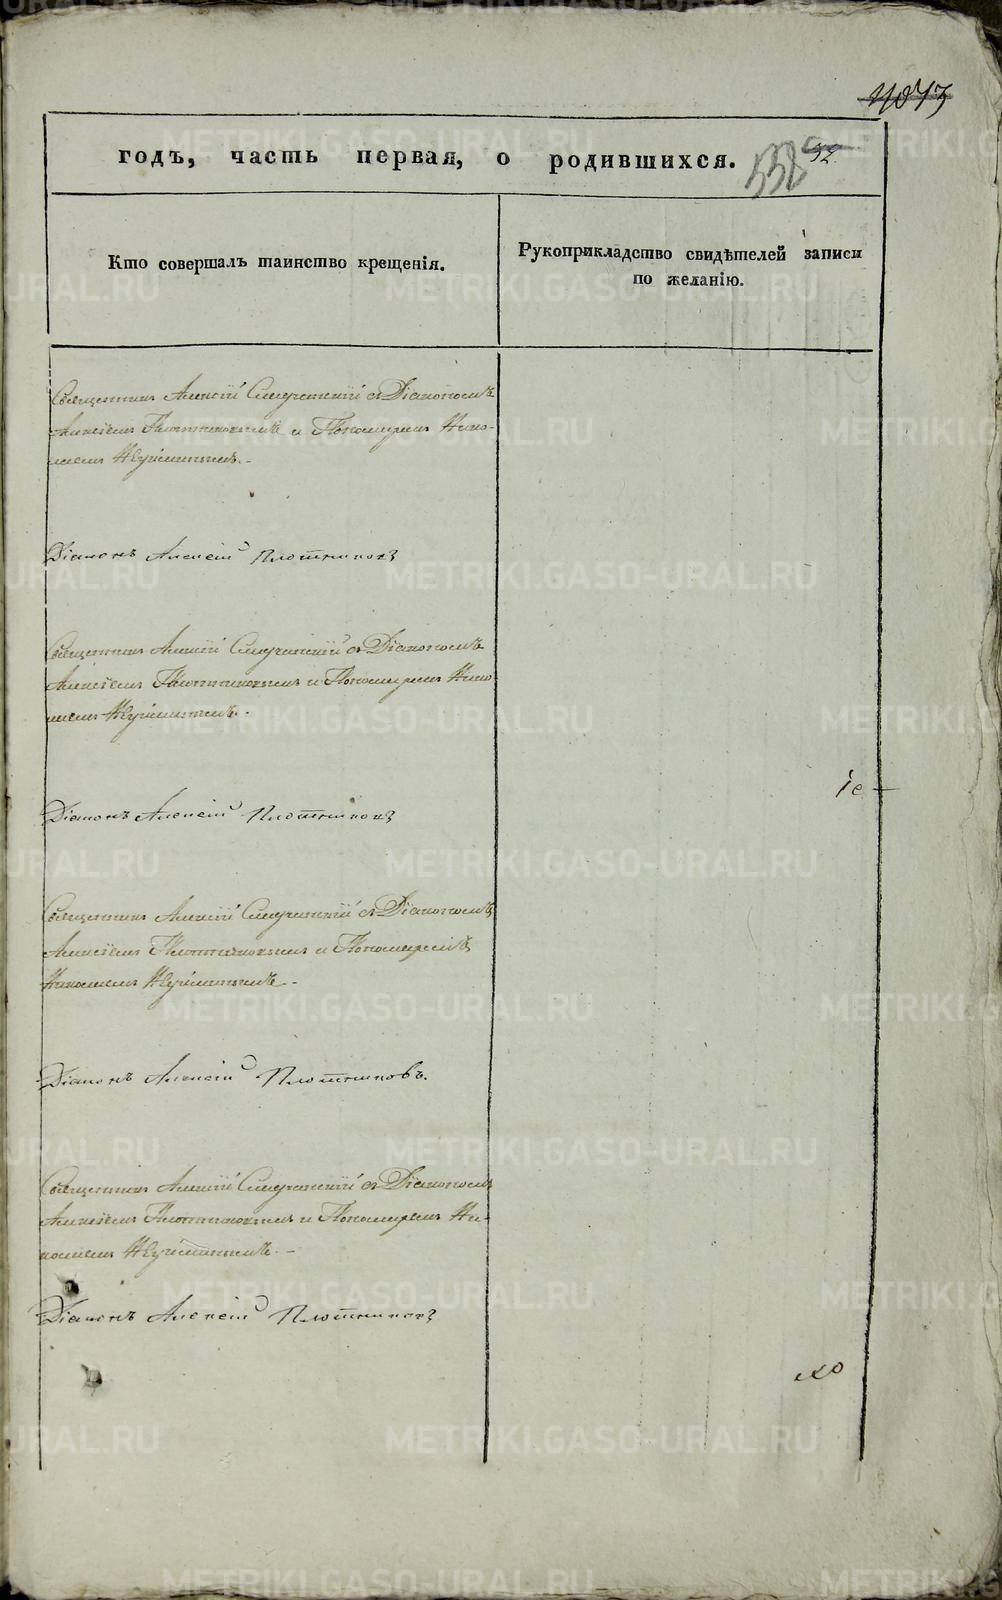 1073
годъ, часть первая, о родившихся.
338
Кто совершалъ таинство крещенія.
Рукоприкладство свидѣтелей записи
по желанію.
Священникъ Алексій съ Діакономъ
Алексіемъ Плотниковымъ и Пономаремъ Нико-
лаемъ
Діаконъ Алексій Плотниковъ
Священникъ Алексій съ Діакономъ
Алексіемъ Плотниковымъ и Пономаремъ Нико
лаемъ
Діаконъ Алексій Плотниковъ
Священникъ Алексій съ Діакономъ
Алексіемъ Плотниковымъ и Пономаремъ
Николаемъ
Діаконъ Алексій Плотниковъ.
Священникъ Алексій съ Діакономъ
Алексіемъ Плотниковымъ и Пономаремъ Ни-
колаемъ
Діаконъ Алексій Плотниковъ
METRIKI.GASO-URAL.RU